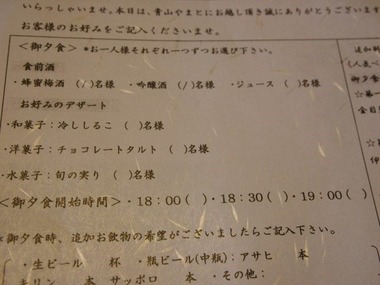 いらっしゃいませ。本日は、青山やまとにお越し頂き誠にありがとうございます
お客様のお好みをご記入くださいませ。
<御夕食> *お一人様それぞれ一つずつお選び下さい。
食前酒
・蜂蜜梅酒 (/)名様 ・吟醸酒 (/)名様 ・ジュース ( )名様
お好みのデザート
・和菓子:冷ししるこ ( )名様
・洋菓子:チョコレートタルト ( )名様
・水菓子:旬の実り ( )名様
<御夕食開始時間> ・18:00( )・18:30( )・19:00( )
*御夕食時、追加お飲物の希望がございましたらご記入下さい。
・生ビール 杯 ・瓶ビール(中瓶):アサヒ 本
キリン 本 サッポロ 本 ・その他:
追加料
(人気
御夕食
☆第一
金目
☆
伊